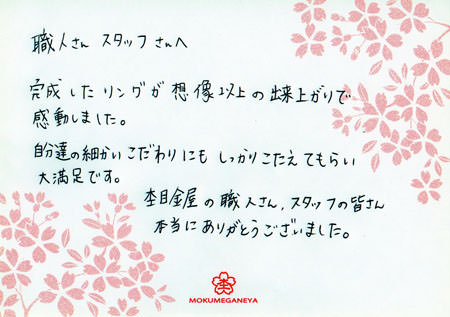 職人さん スタッフさんへ
完成したリングが想像以上の出来上がりで
感動しました。
自分達の細かいこだわりにもしっかりこたえてもらい
大満足です。
杢目金屋の職人さん、スタッフの皆さん
本当にありがとうございました。
杢
MOKUMEGANEYA